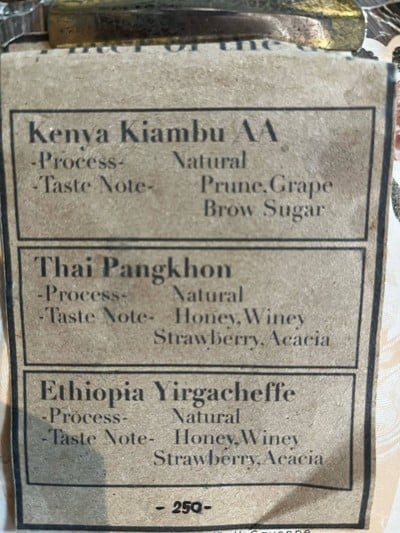 Filter of the
Kenya Kiambu AA
-Process- Natural
-Taste Note- Prune,Grape
Brow Sugar
Thai Pangkhon
-Process- Natural
-Taste Note- Honey,Winey
Strawberry,Acacia
Ethiopia Yirgacheffe
-Process- Natural
-Taste Note- Honey,Winey
Strawberry,Acacia
- 250-